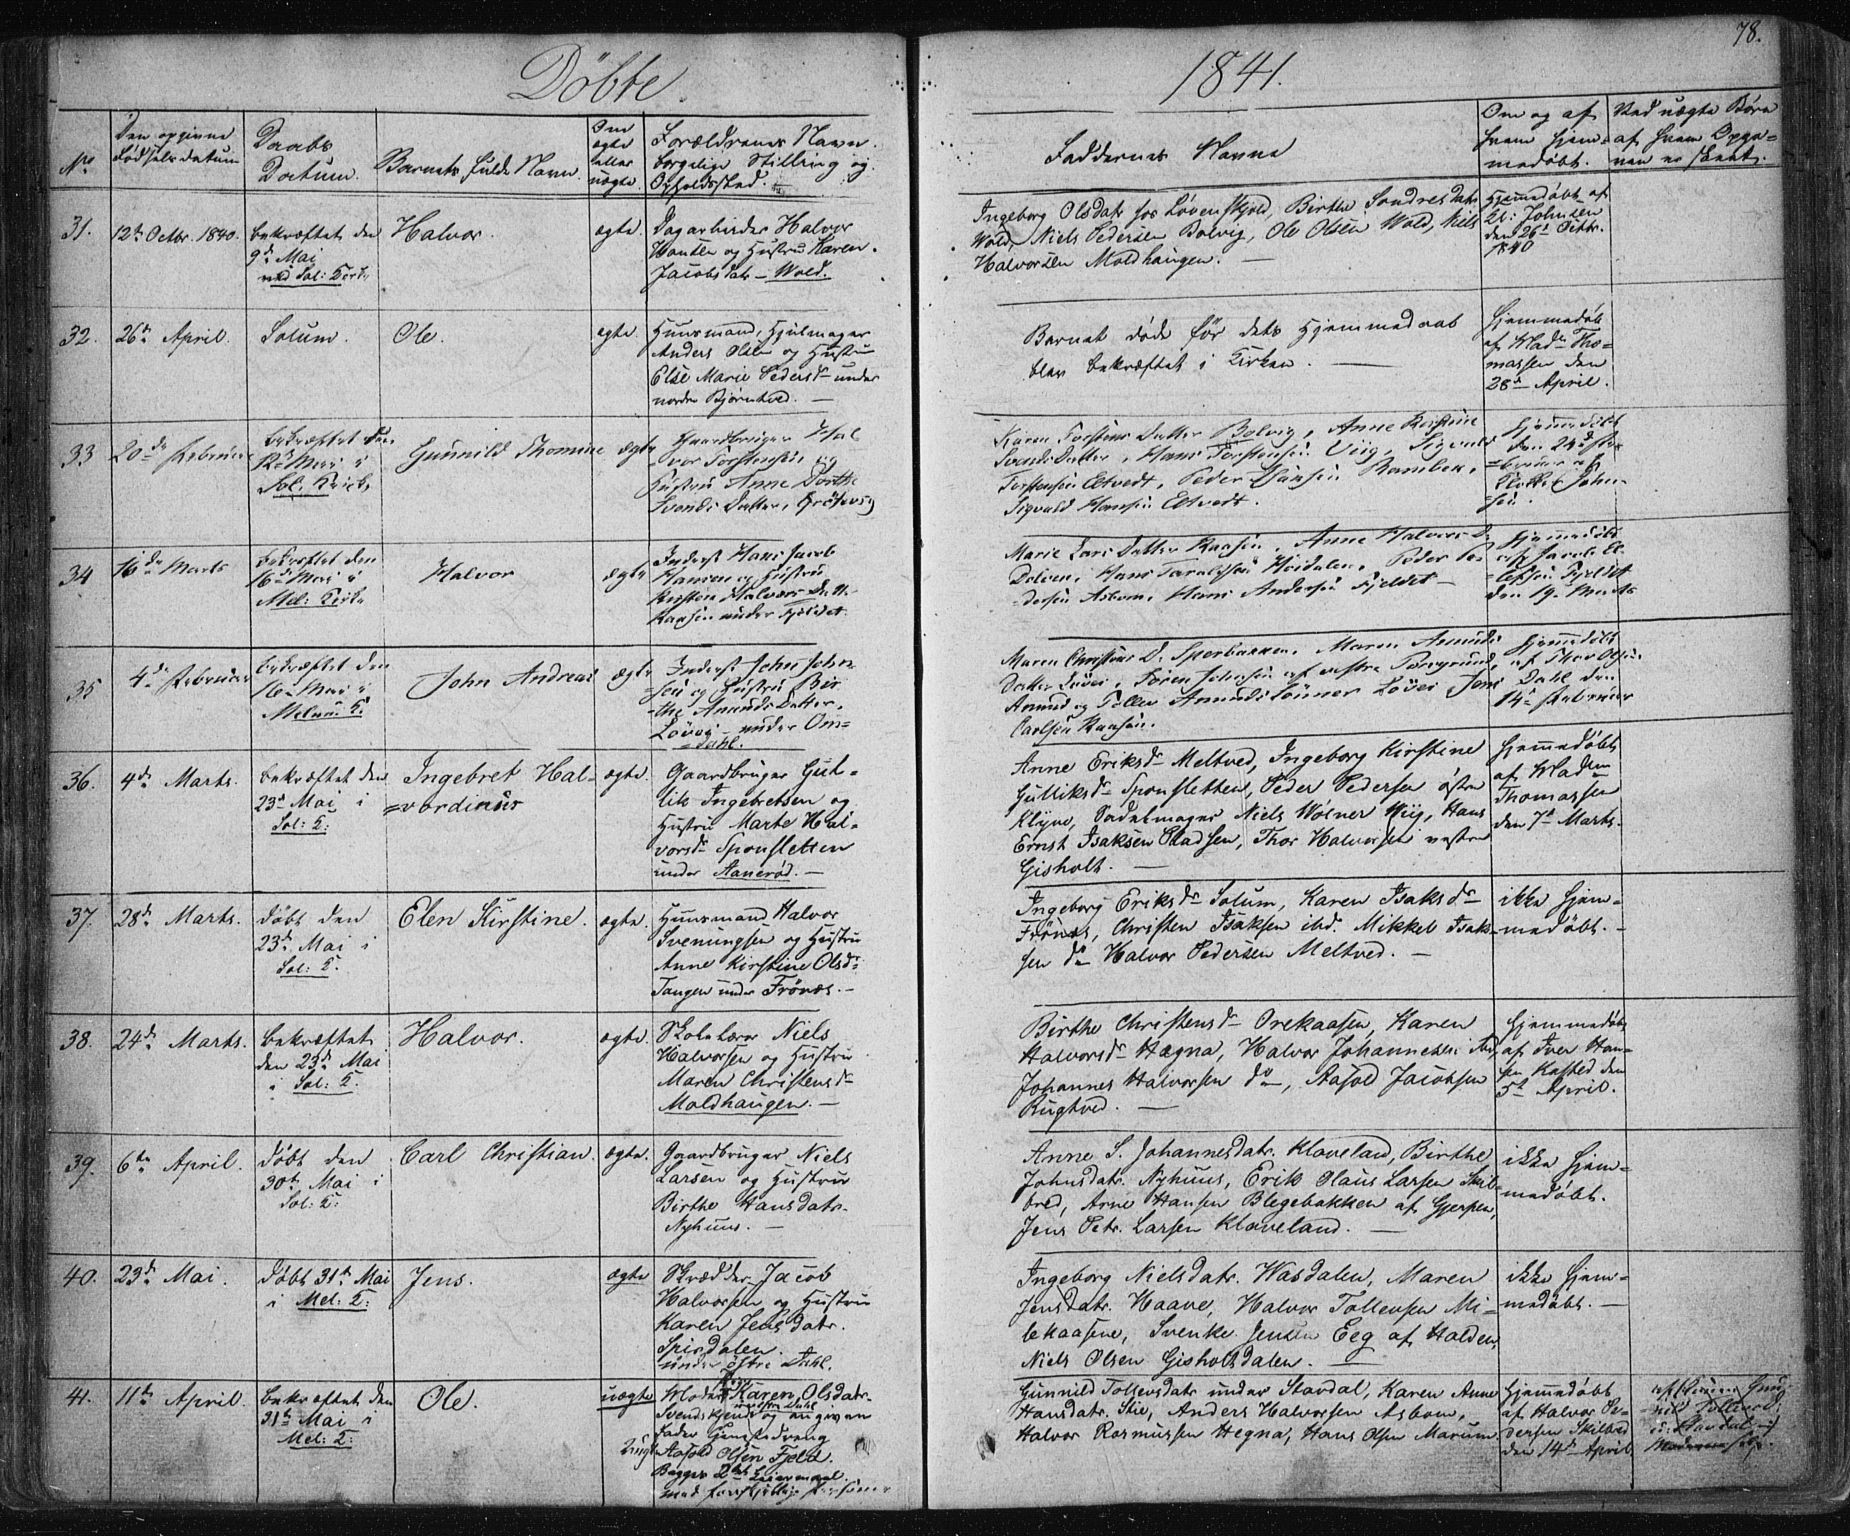 Døbte. 1841. 78.
No
Den opgivne Fødsels datum
Daabs Datum.
Barnets fulde Navn.
Om ægte eller uægte.
Forældrenes Navn. borgelige Stilling og Opholdssted.
Faddernes Navne
Om og af hvem hjem-
medøbt.
Ved uægte Børn
af hvem Opga-
ven er skeet.
31. 12te Octbr. 1840.
bekræftet den
9de Mai
ved Sol: Kirke
Halvor.
ægte.
Dagarbeider Halvor
Hansen og Hustru Karen
Jacobsdatr – Wold.
Ingeborg Olsdatr hos Løvenskjold, Birthe Sondresdatr
Wold, Niels Pedersen Bolvig, Ole Olsen Wold, Niels
Halvorsen Moldhaugen. —
Hjemmedøbt af
Johnsen
den 26d Octbr.
1840
32. 26de April.
Solum.
Ole.
ægte.
Huusmand, Hjulmager
Anders Olsen og Hustru
Else Marie Pedersdr under
nordre Bjørntved. —
Barnet døde før dets Hjemmedaab
blev bekræftet i Kirken. —
Hjemmedøb
af Mad. Tho-
massen den
28de April.
33 20de Februar
bekræftet den
Mai i
Sol: Kirke
Gunnild Thomine
ægte
Gaardbruger Hal-
vor Torstensen og
Hustru Anne Dorthe
Svends Datter,
Karen Torstens Datter Bolvig, Anne Kirstine
Svends Datter, Hans Torstensen Viig, Sigvald
Torstensen Eltvedt, Peder Hansen Rambek,
Sigvald Hansen Eltvedt.
Hjemmedøbt
den 24de Fe-
bruar af
John-
sen
34 16de Marts
bekræftet den
16de Mai i
Mel: Kirke
Halvor
ægte
Inderst Hans Jacob
Hansen og Hustru
Kirsten Halvors Datter
Kaasen under Fjeldet.
Marie Lars Datter Kaasen, Anne Halvors D.
Dolven, Hans Taraldsen Heidalen, Peder Pe-
dersen Asbom, Hans Andersen Fjeldet —
Hjemmedøbt
af Jacob El-
lefsen Fjeldet
den 19. Marts
35 4de Februar
bekræftet den
16de Mai i
Melum K.
John Andreas
ægte
Inderst John John-
sen og Hustru Bir-
the Amunds Datter,
Løvei under Om-
dahl.
Maren Christens D. Sperbakken, Maren Amunds
Datter Løvei, Søren Johnsen af vestre Porsgrund,
Amund og Tollev Amunds Sønner Løvei, Jens
Carlsen Kaasen.
Hjemmedøbt
af Thor Olsen
Dahl den
14de Februar
36. 4de Marts.
bekræftet den
23de Mai i
Sol: K.
Ingebret Hal-
vordinus
ægte.
Gaardbruger Gul-
lik Ingebretsen og
Hustru Marte Hal-
vorsdr Sponsletten
under Aanerød. —
Anne Eriksdr Meltved, Ingeborg Kirstine
Gulliksdr Sponsletten, Peder Pedersen østre
Klyve, Sadelmager Niels Wølner Wiig, Hans
Ernst Isaksen Stadsen, Thor Halvorsen vestre
Gisholt. —
Hjemmedøbt
af Madm
Thomassen
den 7de Marts.
37. 28de Marts.
døbt den
23de Mai i
Sol: K.
Elen Kirstine.
ægte.
Huusmand Halvor
Svenungsen og Hustru
Anne Kirstine Olsdr
Tangen under Frønæs. —
Ingeborg Eriksdr Solum, Karen Isaksdr
Frønæs, Christen Isaksen ibd. Mikkel Isak-
sen do Halvor Pedersen Meltved. —
ikke hjem-
medøbt. —
38. 24de Marts.
bekræftet
den 23de Mai
i Sol: K.
Halvor.
ægte.
Skolelærer Niels
Halvorsen og Hustru
Maren Christensdr
Moldhaugen. —
Birthe Christensdr Orekaasen, Karen
Halvorsdr Hægna, Halvor Johannesen
Johannes Halvorsen do, Aasold Jacobsen
Rugtved. —
Hjemmedøbt
af Iver Han-
sen Kasted den
5te April.
39. 6te April.
døbt den
30te Mai i
Sol: K.
Carl Christian.
ægte.
Gaardbruger Niels
Larsen og Hustru
Birthe Hansdatr.
Nyhuus. —
Anne S. Johannesdatr. Klaveland, Birthe
Johnsdatr. Nyhuus, Erik Olaus Larsen Skil-
bred, Arne Hansen Blegebakken af Gjerpen,
Jens Petr. Larsen Klaveland. —
ikke hjem-
medøbt.
40. 23de Mai.
døbt 31te Mai
i Mel: K:
Jens.
ægte
Skrædder Jacob
Halvorsen og Hustru
Karen Jensdatr.
Spirdalen.
under østre Dahl.
Ingeborg Nielsdatr. Wasdalen, Maren
Jensdatr. Haave, Halvor Tollevsen Mi-
lekaasene, Svenke Jensen Eeg af Halden,
Niels Olsen Gisholtdalen. —
ikke hjem-
medøbt. —
41. 11te April.
bekræftet den
31te Mai i
Mel: K:
Ole.
uægte
Moder: Karen Olsdatr.
og angiven
Fader
Aasold Olsen Fjeld.
Begges 2det Leiermaal
med forskjellige Personer
Gunnild Tollevsdatr under Stavdal, Karen Anne
Hansdatr. Stie, Anders Halvorsen Asbom,
Halvor Rasmussen Hegna, Hans Olsen Marum
Hjemmedøbt
af Halvor Pe-
dersen Skilbred
den 14de April